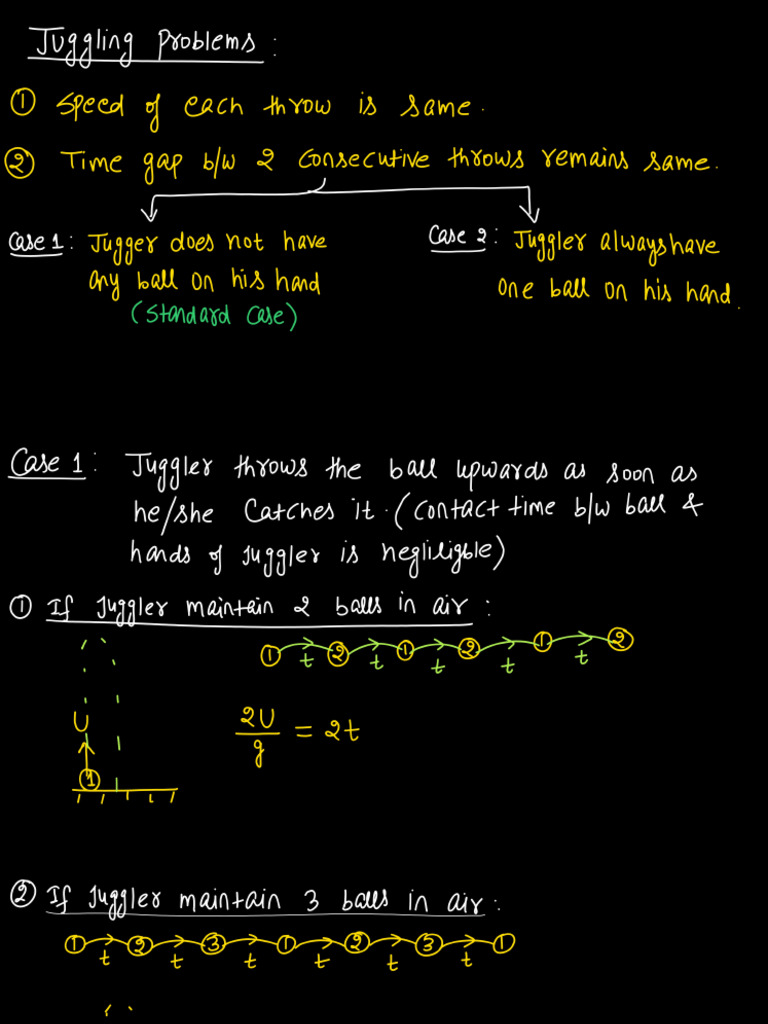 Juggling Problems :
① Speed of each throw is same.
② Time gap b/w 2 consecutive throws remains same.
Case 1 : Jugger does not have
any ball on his hand
(Standard Case)
Case 2 : Juggler always have
one ball on his hand.
Case 1 : Juggler throws the ball upwards as soon as
he/she catches it. (contact time b/w ball &
hands of juggler is negliligble)
① If Juggler maintain 2 balls in air :
① t ② t ① t ② t ① t ②
U
①
2U/g = 2t
② If Juggler maintain 3 balls in air :
① t ② t ③ t ① t ② t ③ t ①